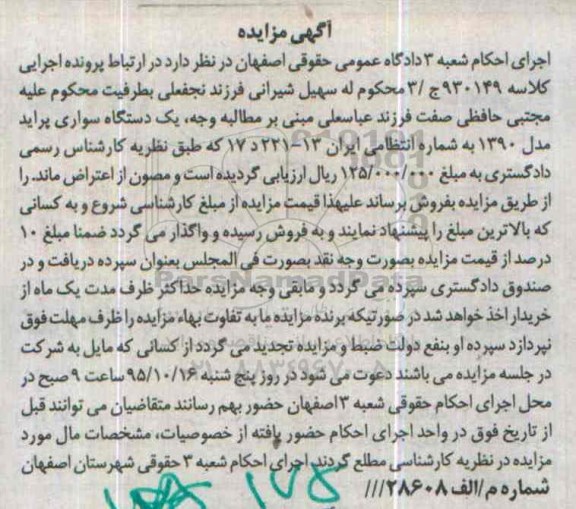 آگهی مزایده
اجرای احکام شعبه ۳ دادگاه عمومی حقوقی اصفهان در نظر دارد در ارتباط پرونده اجرایی
کلاسه ۹۳۰۱۴۹ ج /۳ محکوم له سهیل شیرانی فرزند نجفعلی بطرفیت محکوم علیه
مجتبی حافظی صفت فرزند عباسعلی مبنی بر مطالبه وجه، یک دستگاه سواری پراید
مدل ۱۳۹۰ به شماره انتظامی ایران ۱۳-۲۲۱ د ۱۷ که طبق نظریه کارشناس رسمی
دادگستری به مبلغ ۱۲۵/۰۰۰/۰۰۰ ریال ارزیابی گردیده است و مصون از اعتراض ماند. را
از طریق مزایده بفروش برساند علیهذا قیمت مزایده از مبلغ کارشناسی شروع و به کسانی
که بالاترین مبلغ را پیشنهاد نمایند و به فروش رسیده و واگذار می گردد ضمنا مبلغ ۱۰
درصد از قیمت مزایده بصورت وجه نقد بصورت فی المجلس بعنوان سپرده دریافت و در
صندوق دادگستری سپرده می گردد و مابقی وجه مزایده حداکثر ظرف مدت یک ماه از
خریدار اخذ خواهد شد در صورتیکه برنده مزایده ما به تفاوت بهاء مزایده را ظرف مهلت فوق
نپردازد سپرده او بنفع دولت ضبط و مزایده تجدید می گردد از کسانی که مایل به شرکت
در جلسه مزایده می باشند دعوت می شود در روز پنج شنبه ۹۵/۱۰/۱۶ ساعت ۹ صبح در
محل اجرای احکام حقوقی شعبه ۳ اصفهان حضور بهم رسانند متقاضیان می توانند قبل
از تاریخ فوق در واحد اجرای احکام حضور یافته از خصوصیات، مشخصات مال مورد
مزایده در نظریه کارشناسی مطلع گردند. اجرای احکام شعبه ۳ حقوقی شهرستان اصفهان
شماره م/الف ۲۸۶۰۸///
ParsNamadData